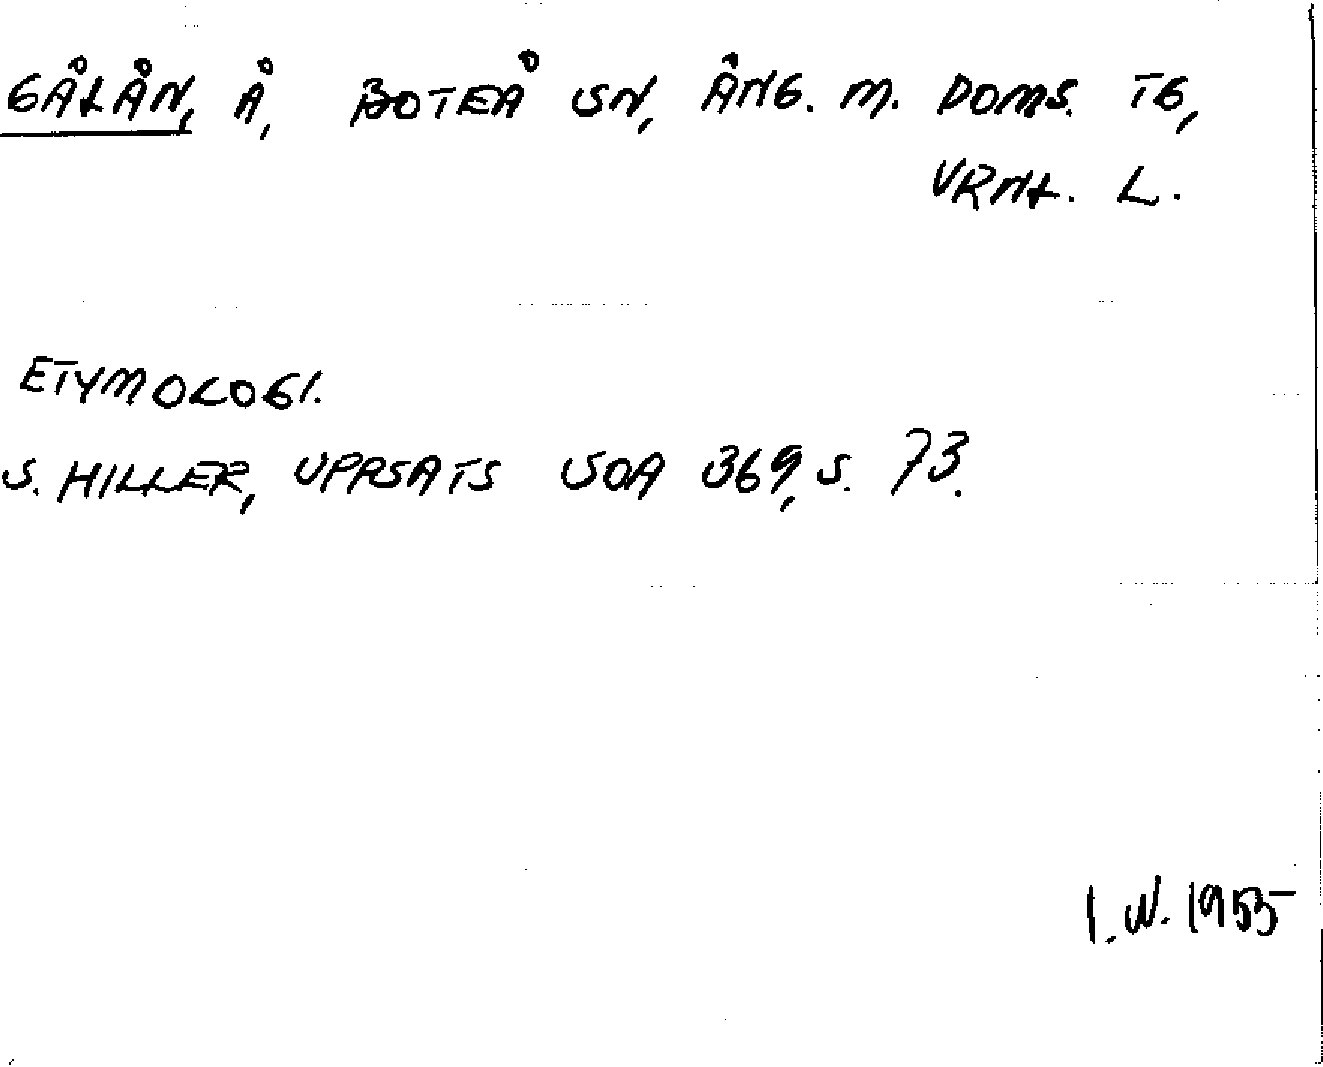 GÅLÅN, Å, BOTEÅ SN, ÅNG. M. DOMS. TG,
VRNL. L.
ETYMOLOGI.
S. HILLER, UPPSATS SOA 369, S. 73.
I.W. 1955